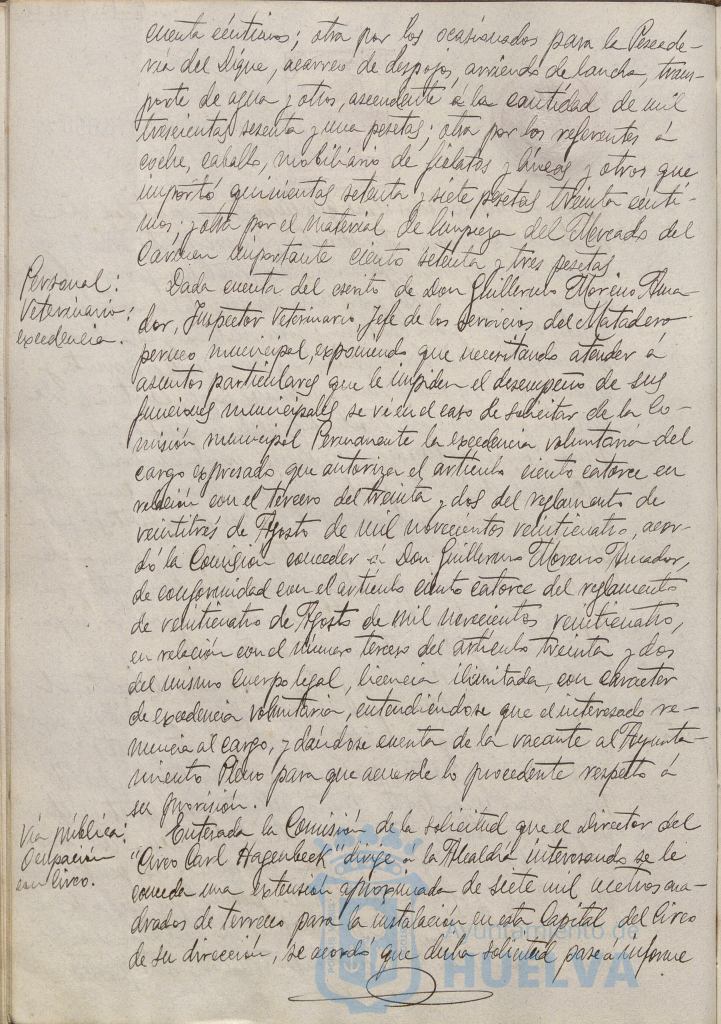 cuenta céntimos; otra por los ocasionados para la Pescade-
ría del Dique, acarreo de despojos, arriendo de lancha, trans-
porte de agua y otros, ascendente á la cantidad de mil
trescientas sesenta y una pesetas; otra por los referentes á
coche, caballo, mobiliario de fielatos y líneas y otros que
importó quinientas setenta y siete pesetas treinta cénti-
mos; y otra por el material de limpieza del Mercado del
Cármen importante ciento setenta y tres pesetas
Personal:
Veterinario:
excedencia.
Dada cuenta del escrito de Don Guillermo Moreno Ama-
dor, Inspector Veterinario, Jefe de los servicios del Matadero
público municipal, exponiendo que necesitando atender á
asuntos particulares que le impiden el desempeño de sus
funciones municipales se vé en el caso de solicitar de la Co-
misión municipal Permanente la excedencia voluntaria del
cargo expresado que autoriza el artículo ciento catorce en
relación con el tercero del treinta y dos del reglamento de
veintitrés de Agosto de mil novecientos veinticuatro, acor-
dó la Comisión conceder á Don Guillermo Moreno Amador,
de conformidad con el artículo ciento catorce del reglamento
de veinticuatro de Agosto de mil novecientos veinticuatro,
en relación con el número tercero del artículo treinta y dos
del mismo cuerpo legal, licencia ilimitada, con caracter
de excedencia voluntaria, entendiéndose que el interesado re-
nuncia al cargo, y dándose cuenta de la vacante al Ayunta-
miento Pleno para que acuerde lo procedente respecto á
su provisión.
Vía pública:
Ocupación
con Circo.
Enterada la Comisión de la solicitud que el Director del
"Circo Carl Hagenbeck" dirije á la Alcaldía interesando se le
conceda una extensión aproximada de siete mil metros cua-
drados de terreno para la instalación en esta Capital del Circo
de su dirección, se acordó que dicha solicitud pase á informe
Ayuntamiento de
HUELVA